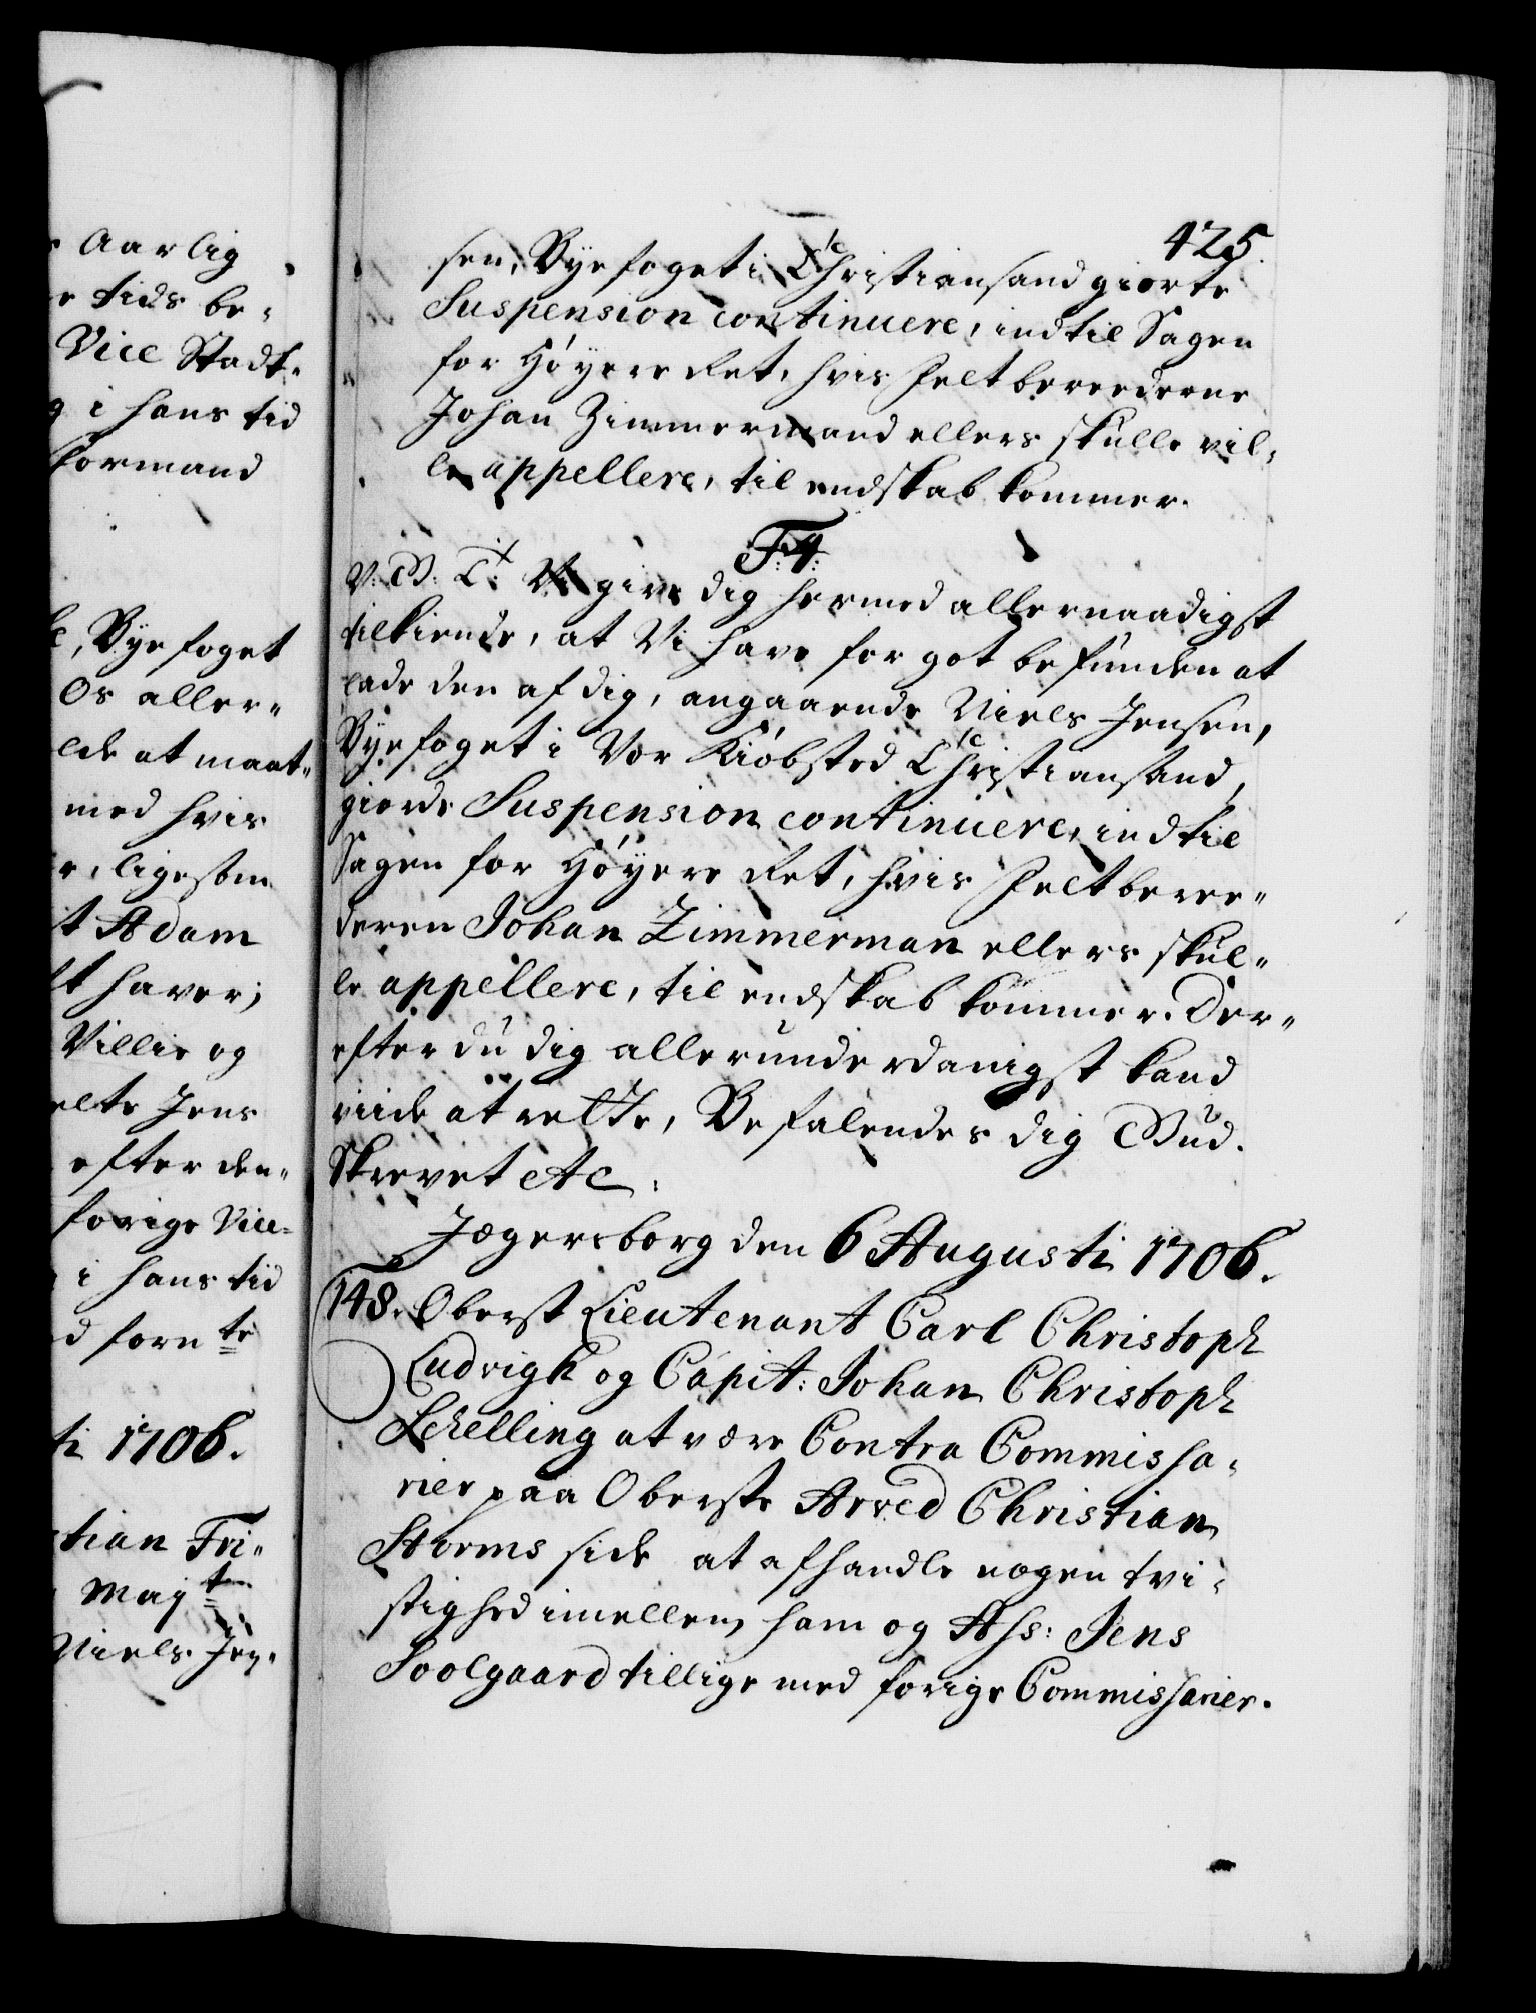 Aarlig
tids be-
Vice Stadt-
i hans tid
formand
Byefoget
Os aller-
lde at maat-
med hvis
ligesom
Adam
haver;
Villie og
elte Jens
efter den-
forige Vice-
i hans tid
forn te
ti 1706.
tian Fri-
May t
Niels Jen-
425.
sen, Byefoget i Christiansand giorte
Suspension continuere, indtil Sagen
for Høyere Ret, hvis Feltbereederne
Johan Zimmermand ellers skulle vil-
le appellere, til endskab kommer.
F. 4.
V: G: T: Vi give dig hermed allernaadigst
tilkiende, at Vi have for got befunden at
lade den af dig, angaaende Niels Jensen,
Byefoget i Vor Kiøbsted Christiansand,
giorde Suspension continuere, indtil
Sagen for Høyere Ret, hvis Feltberee-
deren Johan Zimmerman ellers skul-
le appellere, til endskab kommer. Der-
efter du dig allerunderdanigst kand
viide at rette, Befalendes dig Gud.
Skrevet etc.
Jægersborg den 6 Augusti 1706.
148. Oberst Lieutenant Carl Christoph
Ludvigh og Capit: Johan Christoph
Schelling at være Contra Commissa-
rier paa Oberste Arved Christian
Storms side at afhandle nogen tvi-
stighed imellem ham og Ass: Jens
Soolgaard tillige med forige Commissarier.